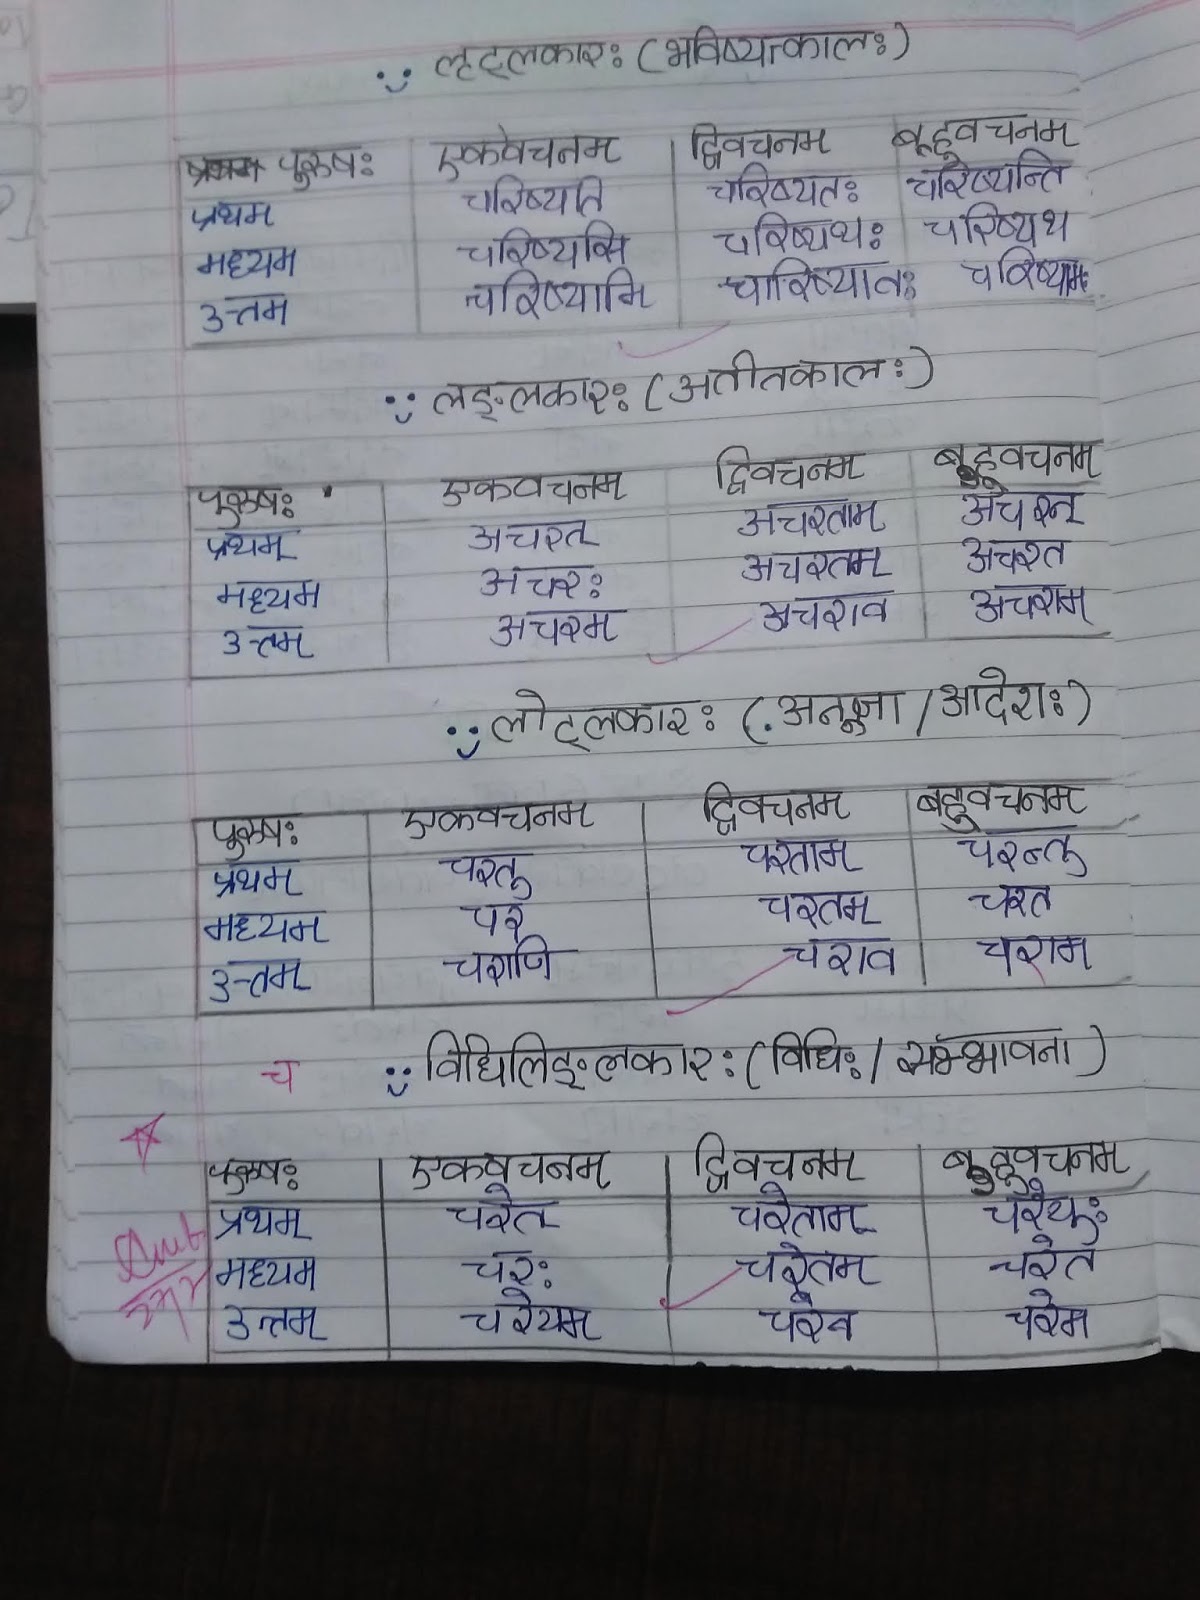 लृट्लकारः (भविष्यत्कालः)
पुरुषः एकवचनम् द्विवचनम् बहुवचनम्
प्रथम चरिष्यति चरिष्यतः चरिष्यन्ति
मध्यम चरिष्यसि चरिष्यथः चरिष्यथ
उत्तम चरिष्यामि चारिष्यावः चरिष्यामः
लङ्लकारः (अतीतकालः)
पुरुषः एकवचनम् द्विवचनम् बहुवचनम्
प्रथम् अचरत् अचरताम् अचरन्
मध्यम अचरः अचरतम् अचरत
उत्तम् अचरम् अचराव अचराम
लोट्लकारः (अनुज्ञा / आदेशः)
पुरुषः एकवचनम् द्विवचनम् बहुवचनम्
प्रथम् चरतु चरताम् चरन्तु
मध्यम् चर चरतम् चरत
उत्तम् चराणि चराव चराम
च
विधिलिङ्लकारः (विधिः / सम्भावना)
पुरुषः एकवचनम् द्विवचनम् बहुवचनम्
प्रथम् चरेत् चरेताम् चरेयुः
मध्यम चरेः चरेतम् चरेत
उत्तम् चरेयम् चरेव चरेम